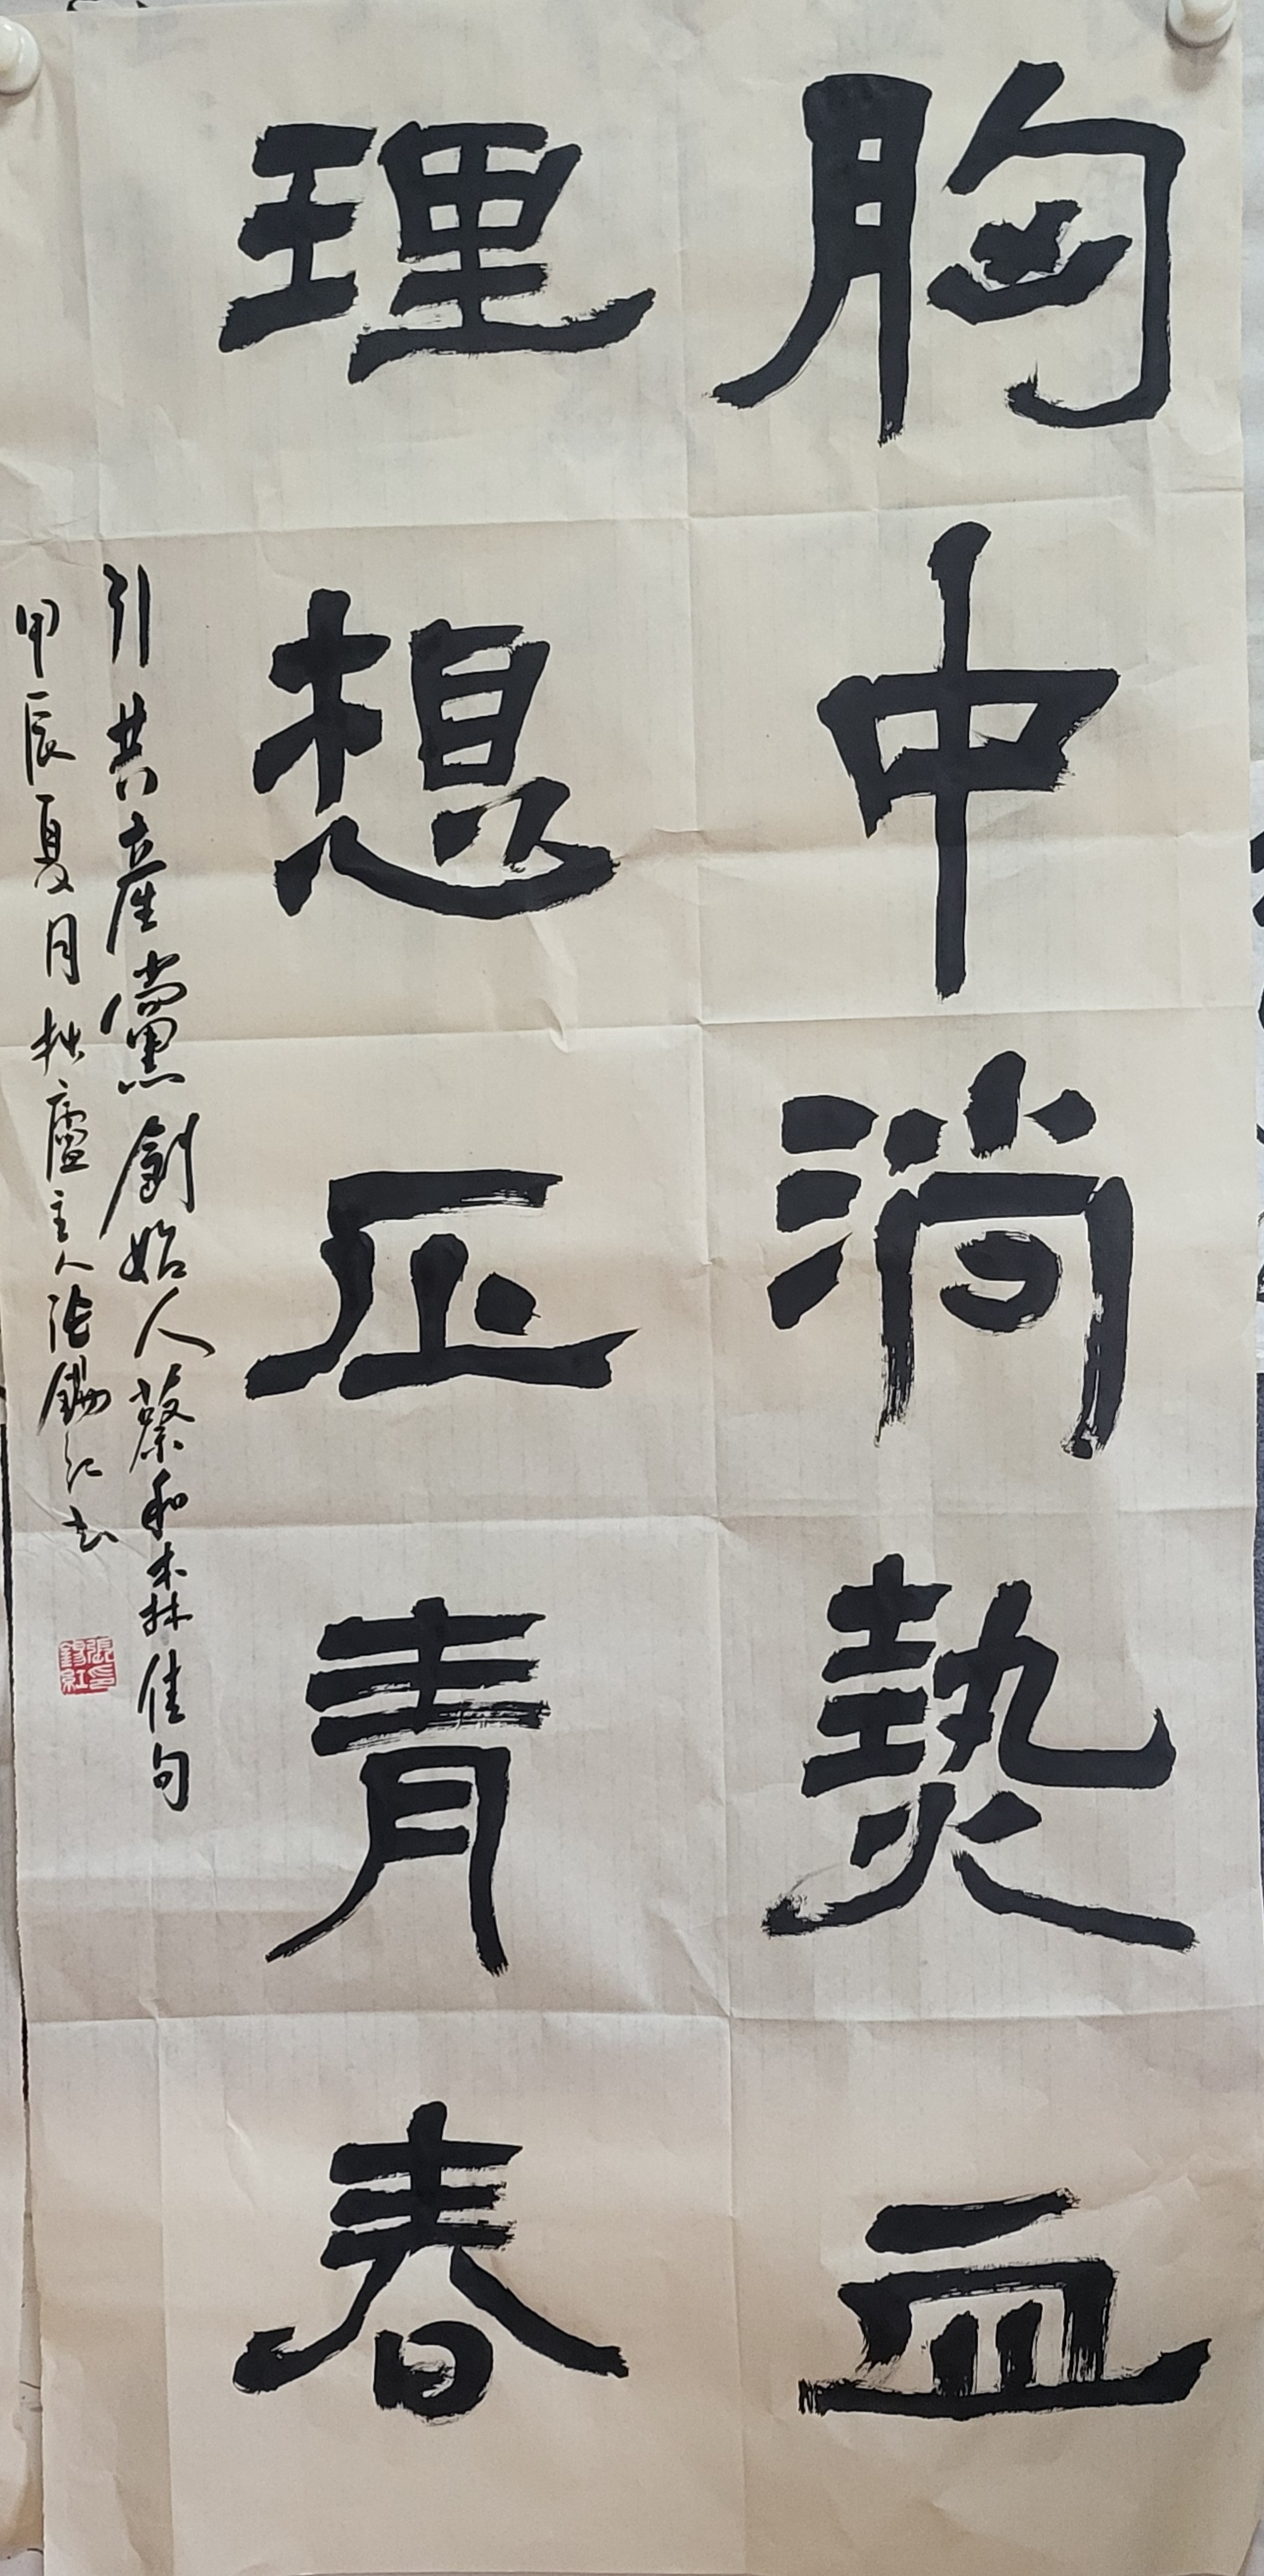 胸中淌熱血
理想正青春
引共産黨創始人蔡和森佳句
甲辰夏月拙廬主人张錫红书
張錫紅印